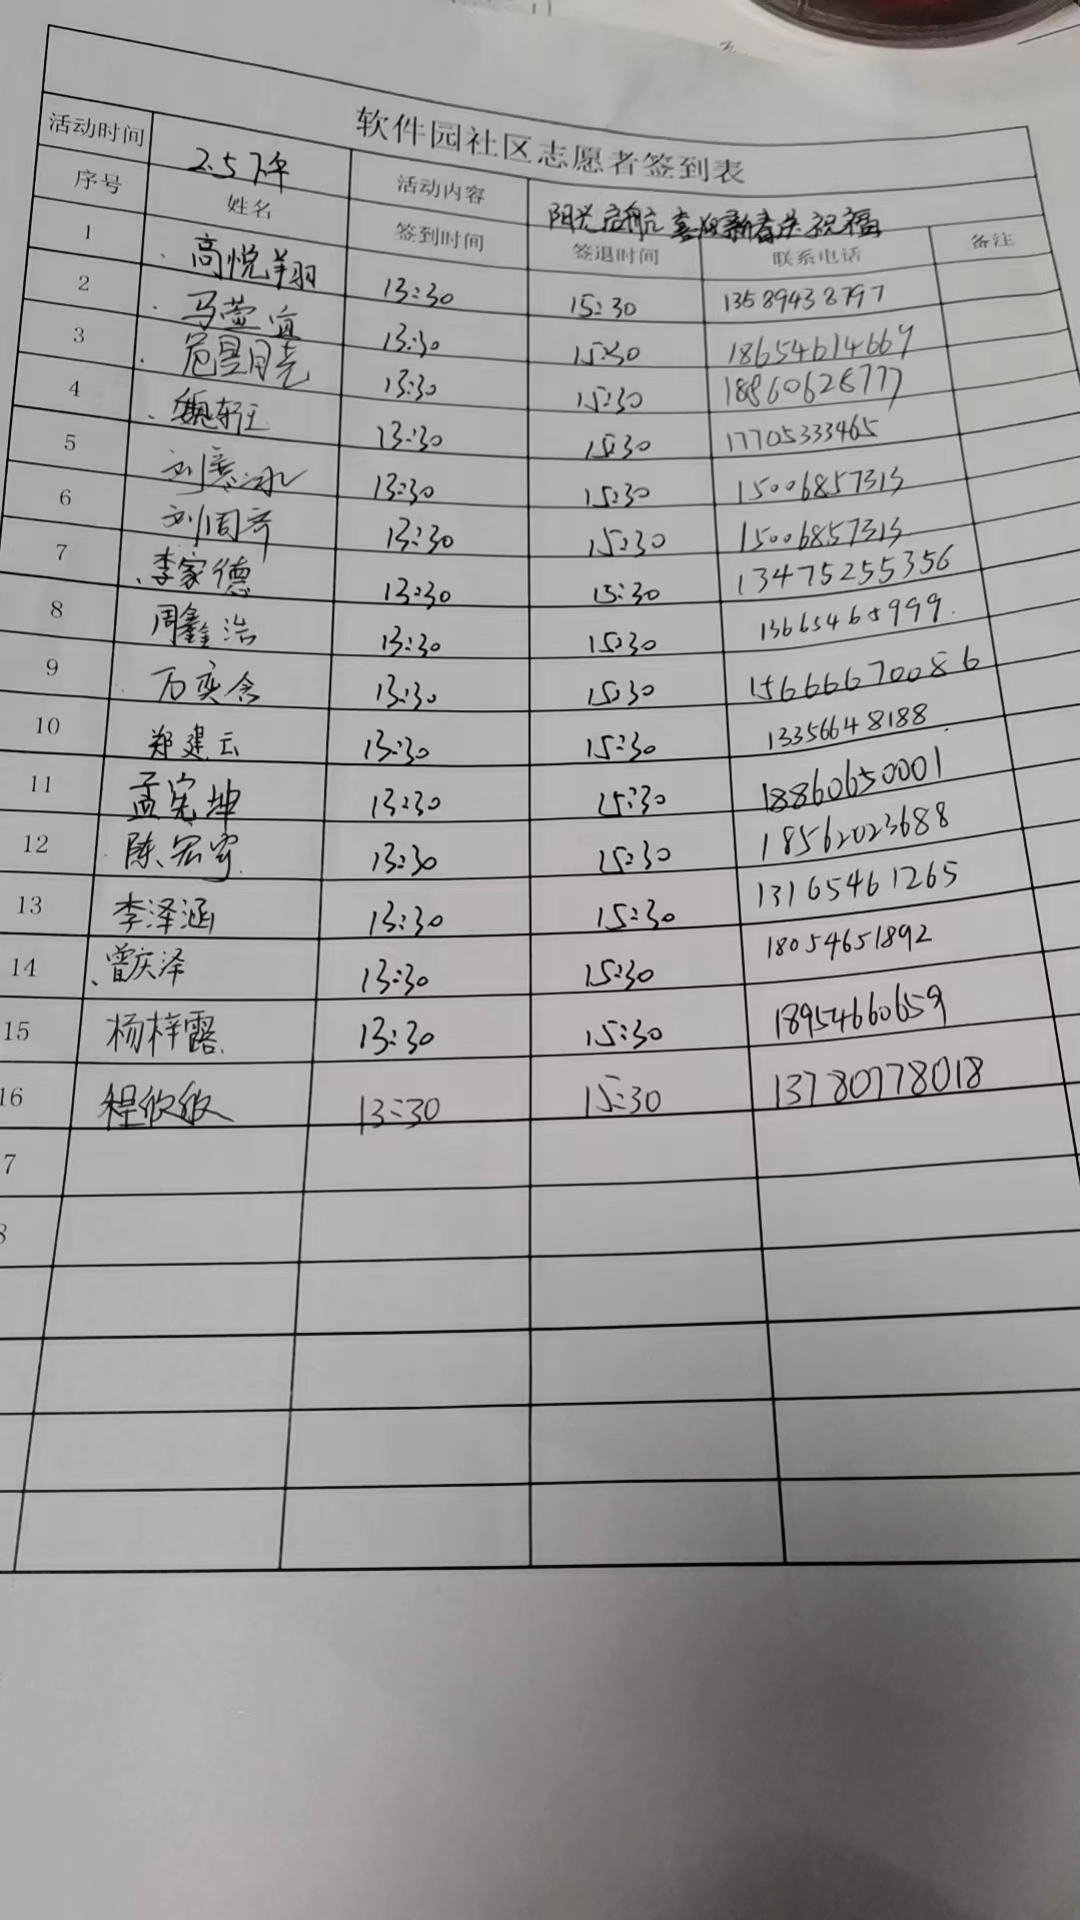 软件园社区志愿者签到表
活动时间 2.5下午 活动内容 阳光启航 喜迎新春送祝福
序号 姓名 签到时间 签退时间 联系电话 备注
1 高悦翔 13:30 15:30 13589438797
2 马萱宜 13:30 15:30 18654614669
3 13:30 15:30 18860628777
4 魏轩 13:30 15:30 17705333465
5 刘寒冰 13:30 15:30 15006857313
6 刘周齐 13:30 15:30 15006857313
7 李家德 13:30 15:30 13475255356
8 周鑫浩 13:30 15:30 13665465999
9 万奕含 13:30 15:30 15666670086
10 郑建云 13:30 15:30 13356648188
11 孟宪坤 13:30 15:30 18860650001
12 陈宏宇 13:30 15:30 18562023688
13 李泽涵 13:30 15:30 13165461265
14 曾庆泽 13:30 15:30 18054651892
15 杨梓露 13:30 15:30 18954660659
16 程 13:30 15:30 13780778018
7
8